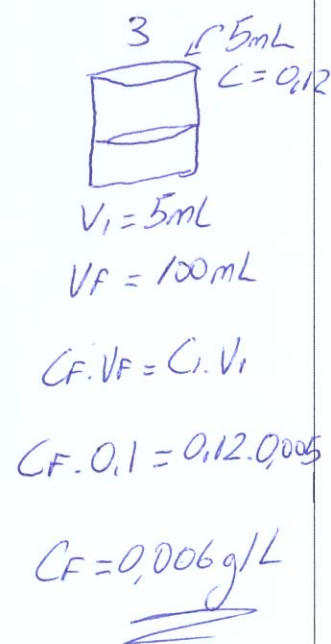 3
5mL
C = 0,12
V₁ = 5mL
VF = 100mL
CF.VF = C₁.V₁
CF.0,1 = 0,12.0,005
CF = 0,006g/L